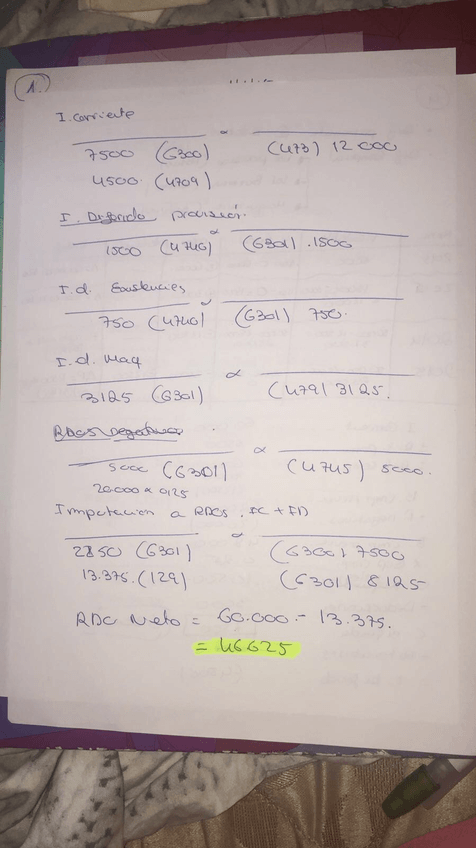 1.
I. Corriente
7500 (6300) a (473) 12 000
4500 (4709)
I. Diferido provisión.
1500 (4740) a (6301) .1500
I.d. Existencias
750 (4740) a (6301) 750.
I.d. Maq
3125 (6301) a (479) 3125.
RDOS negativos
5000 (6301) a (4745) 5000.
20.000 x 0,25
Imputacion a RDOS. IC + ID
2250 (6301) a (6300) 7500
13.375. (129) (6301) 8.125
RDO Neto = 60.000.- 13.375.
= 46625